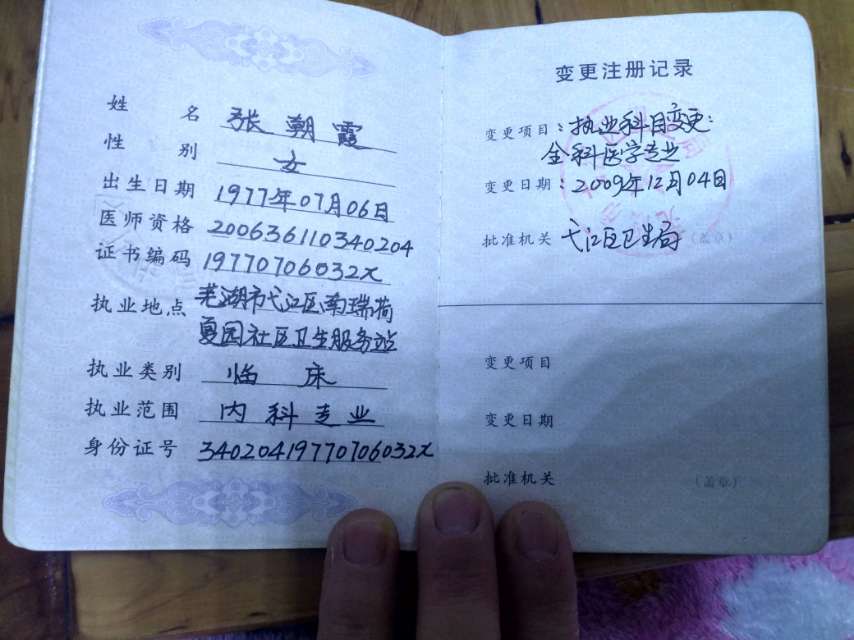 姓 名 张朝霞
性 别 女
出生日期 1977年07月06日
医师资格 200636110340204
证书编码 19770706032x
执业地点 芜湖市弋江区南瑞荷
夏园社区卫生服务站
执业类别 临 床
执业范围 内科专业
身份证号 34020419770706032x
变更注册记录
变更项目：执业科目变更：
全科医学专业
变更日期：2009年12月04日
批准机关 弋江区卫生局 （盖章）
变更项目
变更日期
批准机关 （盖章）